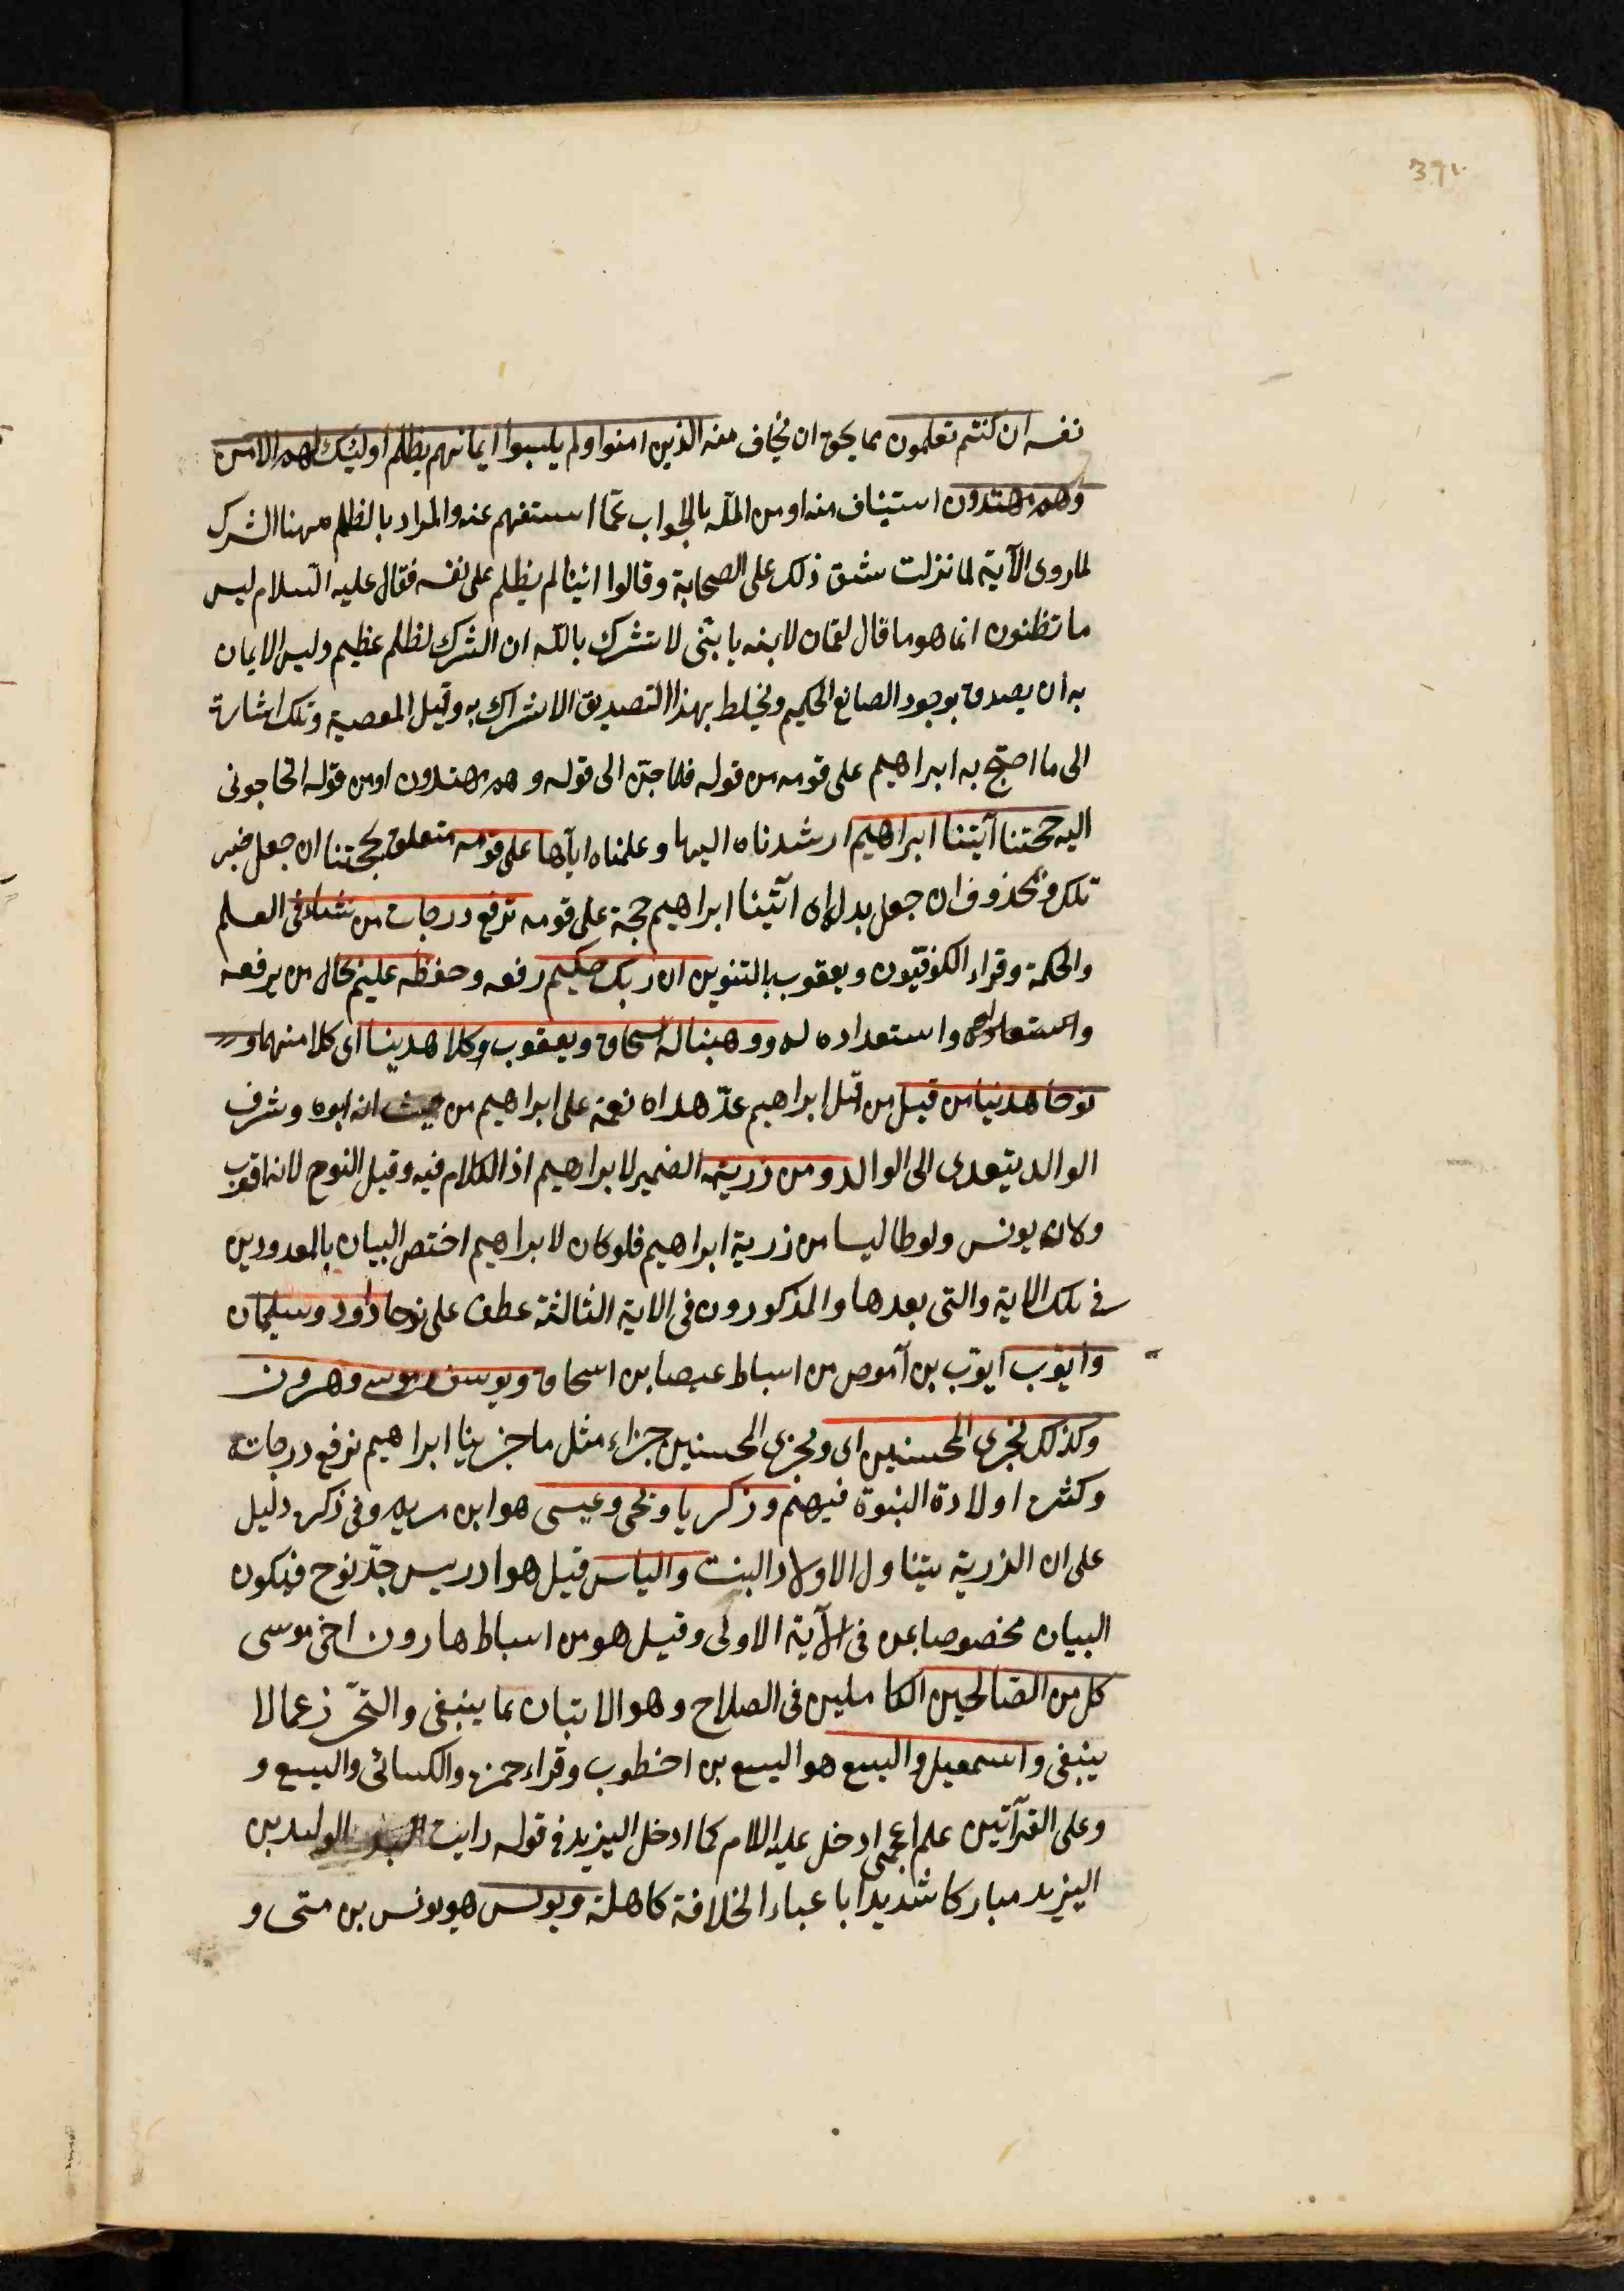 371
نفسه ان كنتم تعلمون مما يحق ان يخاف منه الذين امنوا ولم يلبسوا ايمانهم بظلم اولئيك لهم الامن
وهم مهتدون استيناف منه او من الله بالجواب عمّا استفهم عنه والمراد بالظلم ههنا الشرك
لما روى الآية لما نزلت شق ذلك على الصحابة وقالوا ائينا لم يظلم على نفسه فقال عليه السلام ليس
ما تظنون انما هو ما قال لقمان لابنه يا بنّى لا تشرك بالله ان الشرك لظلم عظيم وليس الايمان
به ان يصدق بوجود الصانع الحكيم ويخلط بهذا التصديق الاشراك به وقيل المعصية وتلك اشارة
الى ما احتج به ابراهيم على قومه من قوله فلما جن الى قوله وهم مهتدون او من قوله اتحاجونى
اليه حجتنا آتيتنا ابراهيم ارشدناه اليها وعلمناه اياها على قومه متعلق بحجتنا ان جعل خبر
تلك وبمحذوف ان جعل بدله اى اتيتنا ابراهيم حجة على قومه نرفع درجات من نشاء فى العلم
والحكمة وقراء الكوفيّون ويعقوب بالتنوين ان ربك حكيم رفعه وحفظه عليم بحال من يرفعه
واستعداده له ووهبنا له اسحاق ويعقوب وكلا هدينا اى كلا منهما و
نوحا هدينا من قبل من قبل ابراهيم عدّ هداه نعمة على ابراهيم من حيث انه ابوه وشرف
الوالد يتعدى الى الوالد ومن ذريته الضمير لابراهيم اذ الكلام فيه وقيل النوح لانه اقرب
ولان يونس ولوطا ليسا من ذرية ابراهيم فلو كان لابراهيم اختص البيان بالمعدودين
فى تلك الاية والتى بعدها والمذكورون فى الاية الثالثة عطف على نوحا داود وسليمان
وايوب ايوّب بن آموص من اسباط عيصا بن اسحاق ويوسف وموسى وهرون
وكذلك نجزى المحسنين اى ونجزى المحسنين جزاء مثل ما جزينا ابراهيم برفع درجاته
وكثرت اولادة النبوة فيهم وزكريا ويحى وعيسى هو ابن مريم وفى ذكره دليل
على ان الذرية يتناول الاولاد البنت والياس قيل هو ادريس جدّ نوح فيكون
البيان مخصوصا بمن فى الآية الاولى وقيل هو من اسباط هارون اخى موسى
كل من الصّالحين الكاملين فى الصلاح وهو الاتيان بما ينبغى والتحّرز عما لا
ينبغى واسمعيل واليسع هو اليسع بن اخطوب وقراء حمزة والكسائى والليسع و
وعلى القرآتين علم اعجمى ادخل عليه اللام كما ادخل اليزيد فى قوله رايت الوليد بن
اليزيد مباركا شديدا باعباء الخلافة كاهله ويونس هو يونس بن متى و